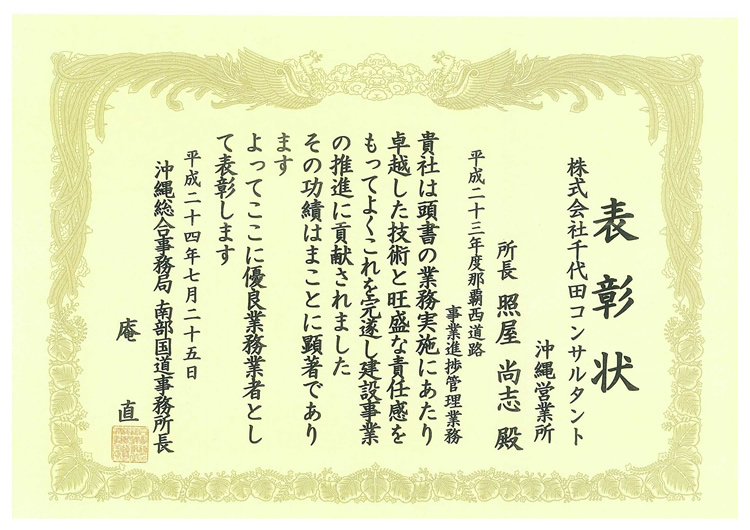 表彰状
株式会社千代田コンサルタント
沖縄営業所
所長 照屋 尚志 殿
平成二十三年度那覇西道路
事業進捗管理業務
貴社は頭書の業務実施にあたり
卓越した技術と旺盛な責任感を
もってよくこれを完遂し建設事業
の推進に貢献されました
その功績はまことに顕著であり
ます
よってここに優良業務業者とし
て表彰します
平成二十四年七月二十五日
沖縄総合事務局 南部国道事務所長
庵 直